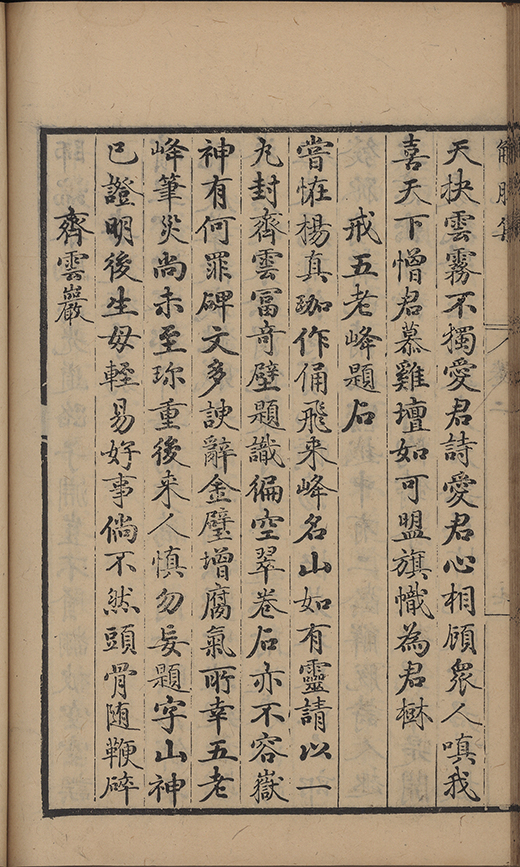 天抉雲霧不獨愛君詩愛君心相顧衆人嗔我
喜天下憎君慕雞壇如可盟旗幟為君樹
戒五老峰題石
嘗恠楊真珈作俑飛来峰名山如有靈請以一
丸封齊雲冨奇壁題識徧空翠卷石亦不容嶽
神有何罪碑文多諛辭金璧增腐氣所幸五老
峰筆災尚未至珎重後来人慎勿妄題字山神
已證明後生毋輕易好事倘不然頭骨随鞭碎
齊雲巖